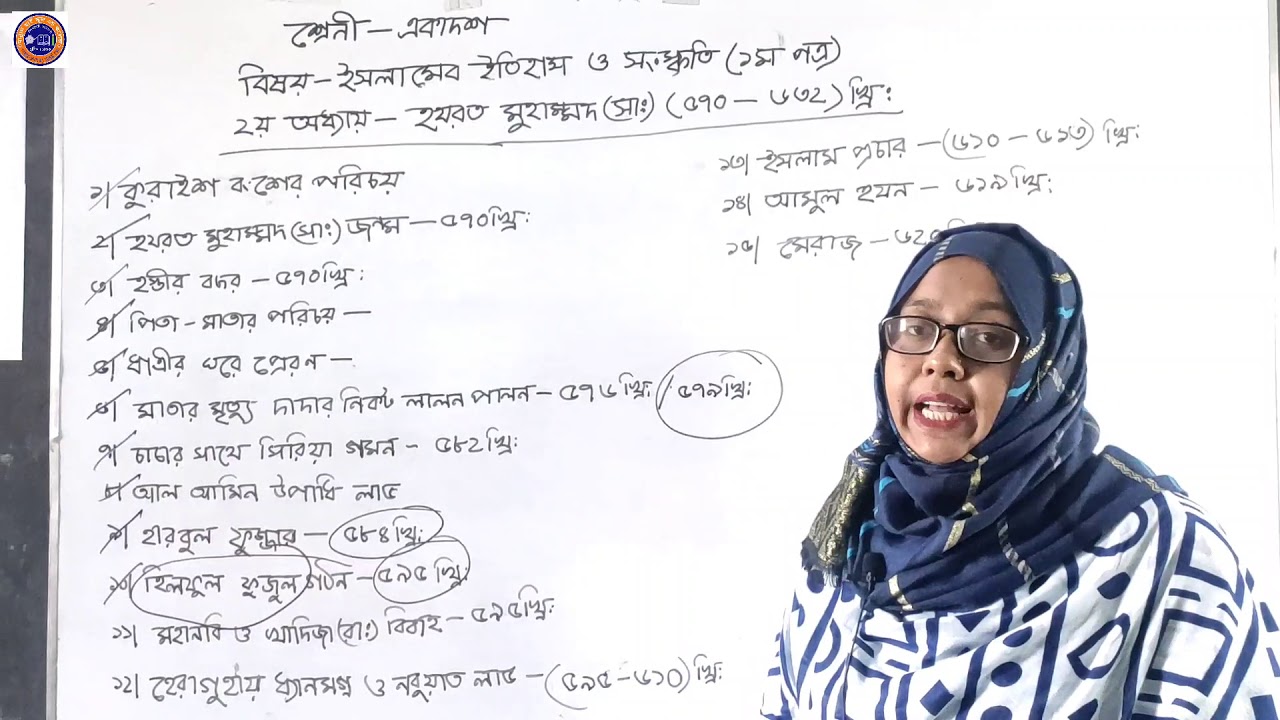 শ্রেনী – একাদশ
বিষয় – ইসলামের ইতিহাস ও সংস্কৃতি (১ম পত্র)
২য় অধ্যায় – হযরত মুহাম্মদ (সাঃ) (৫৭০ – ৬৩২) খ্রিঃ
১। কুরাইশ বংশের পরিচয়
২। হযরত মুহাম্মদ (সাঃ) জন্ম – ৫৭০খ্রিঃ
৩। হস্তীর বছর – ৫৭০খ্রিঃ
৪। পিতা - মাতার পরিচয় –
৫। ধাত্রীর ঘরে প্রেরণ –
৬। মাতার মৃত্যু দাদার নিকট লালন পালন – ৫৭৬ খ্রিঃ / ৫৭৯খ্রিঃ
৭। চাচার সাথে সিরিয়া গমন – ৫৮২খ্রিঃ
৮। আল আমিন উপাধি লাভ
৯। হারবুল ফুজ্জার – ৫৮৪খ্রিঃ
১০। হিলফুল ফুজুল গঠন – ৫৯৫ খ্রিঃ
১১। মহানবি ও খাদিজা (রাঃ) বিবাহ – ৫৯৫খ্রিঃ
১২। হেরাগুহায় ধ্যানমগ্ন ও নবুয়াত লাভ – (৫৯৫ – ৬১০) খ্রিঃ
১৩। ইসলাম প্রচার – (৬১০ – ৬১৩) খ্রিঃ
১৪। আমুল হযন – ৬১৯খ্রিঃ
১৫। মেরাজ – ৬২০